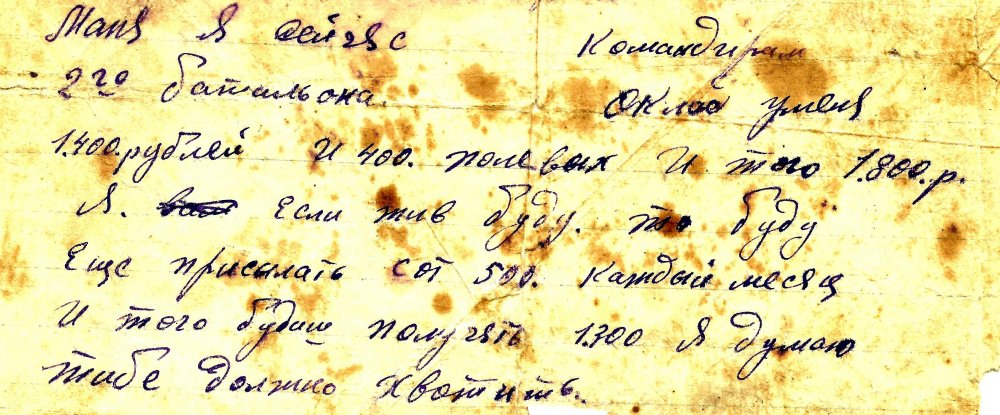 Маня я сейчяс Командирам
2го батальона. Оклад уменя
1.400.рублей и 400. полевых и того 1.800.р.
Я. Если жив буду. то буду
Еще присылать сот 500. каждый месяц
И того будиш получять 1300 я думаю
тибе должно хватить.